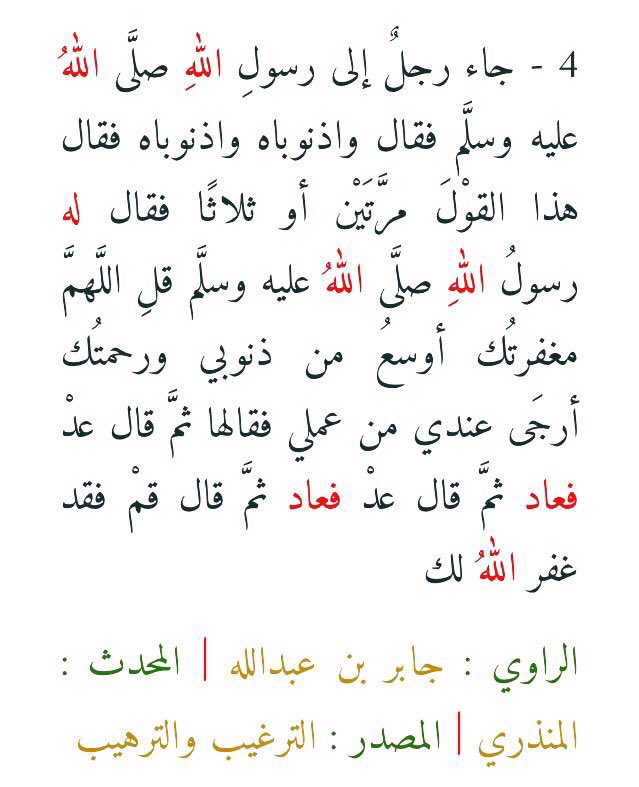 4 - جاء رجلٌ إلى رسولِ اللهِ صلَّى اللهُ
عليه وسلَّم فقال واذنوباه واذنوباه فقال
هذا القوْلَ مرَّتَيْن أو ثلاثًا فقال له
رسولُ اللهِ صلَّى اللهُ عليه وسلَّم قلِ اللَّهمَّ
مغفرتُك أوسعُ من ذنوبي ورحمتُك
أرجَى عندي من عملي فقالها ثمَّ قال عدْ
فعاد ثمَّ قال عدْ فعاد ثمَّ قال قمْ فقد
غفر اللهُ لك
الراوي : جابر بن عبدالله | المحدث :
المنذري | المصدر : الترغيب والترهيب